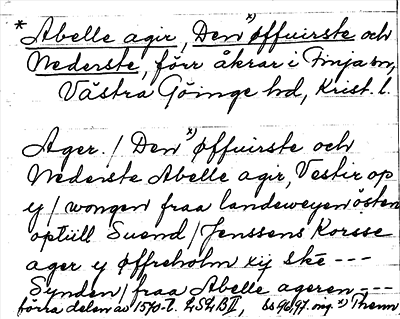 * Abelle agir, Den x) øffuirste och
Nederste, förr åkrar i Finja sn,
Västra Göinge hd, Krist. l.
Ager. / Den x) øffuirste och
Nederste Abelle agir, Vestir op
y / wongen fraa landeweyen östen
optiill Suend / Jenssens Korsse
ager y øffreholm xij ske ---
Synden / fraa Abelle ageren ---
förra delen av 1570-t. LSLB II, bs 96, 97. orig. x)